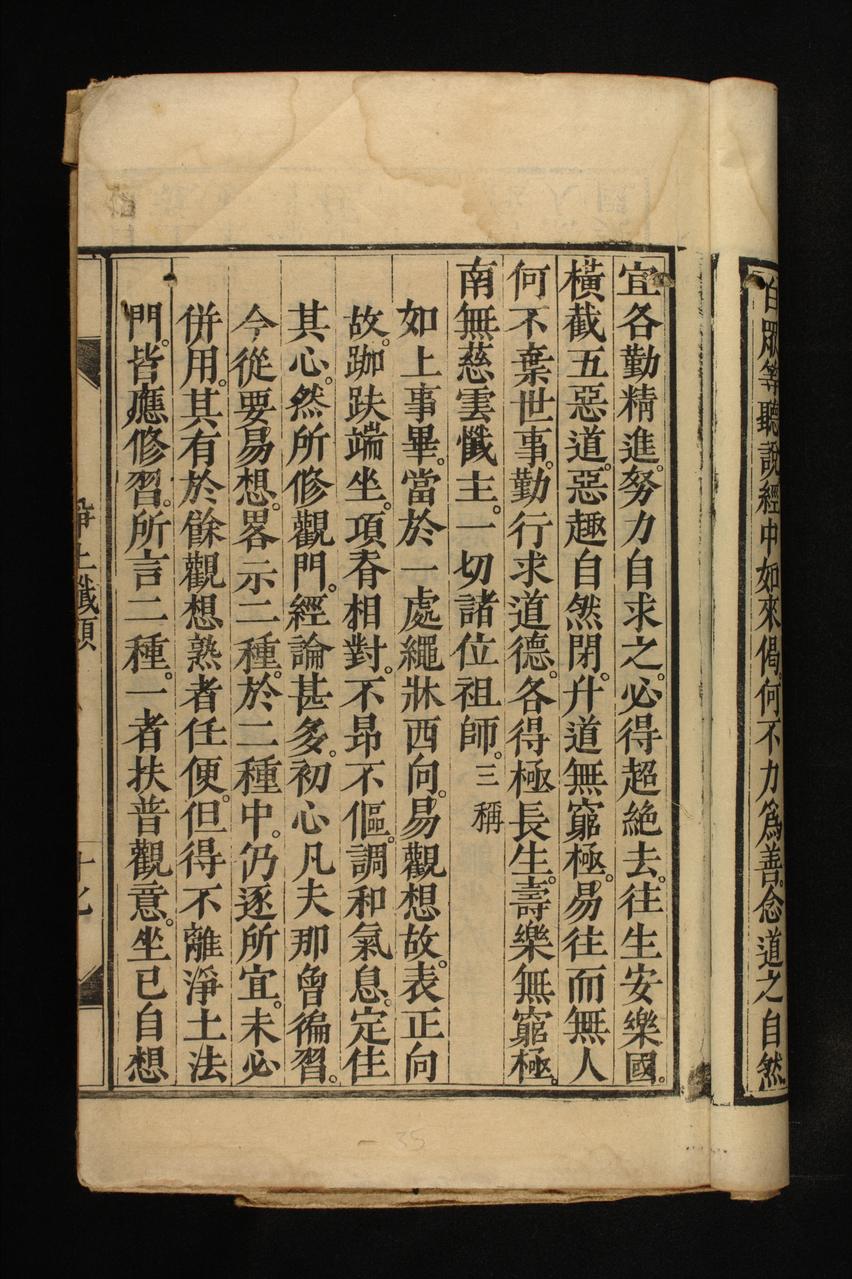 白眾等聽說經中如來偈。何不力為善。念道之自然
宜各勤精進。努力自求之。必得超絕去。往生安樂國。
橫截五惡道。惡趣自然閉。升道無窮極。易往而無人
何不棄世事。勤行求道德。各得極長生。壽樂無窮極。
南無慈雲懺主。一切諸位祖師。三稱
如上事畢。當於一處繩牀西向。易觀想故。表正向
故。跏趺端坐。項脊相對。不昂不傴。調和氣息。定住
其心。然所修觀門。經論甚多。初心凡夫那曾徧習。
今從要易想。畧示二種。於二種中。仍逐所宜。未必
併用。其有於餘觀想熟者任便。但得不離淨土法
門。皆應修習。所言二種。一者扶普觀意。坐已自想
淨土懺願
35